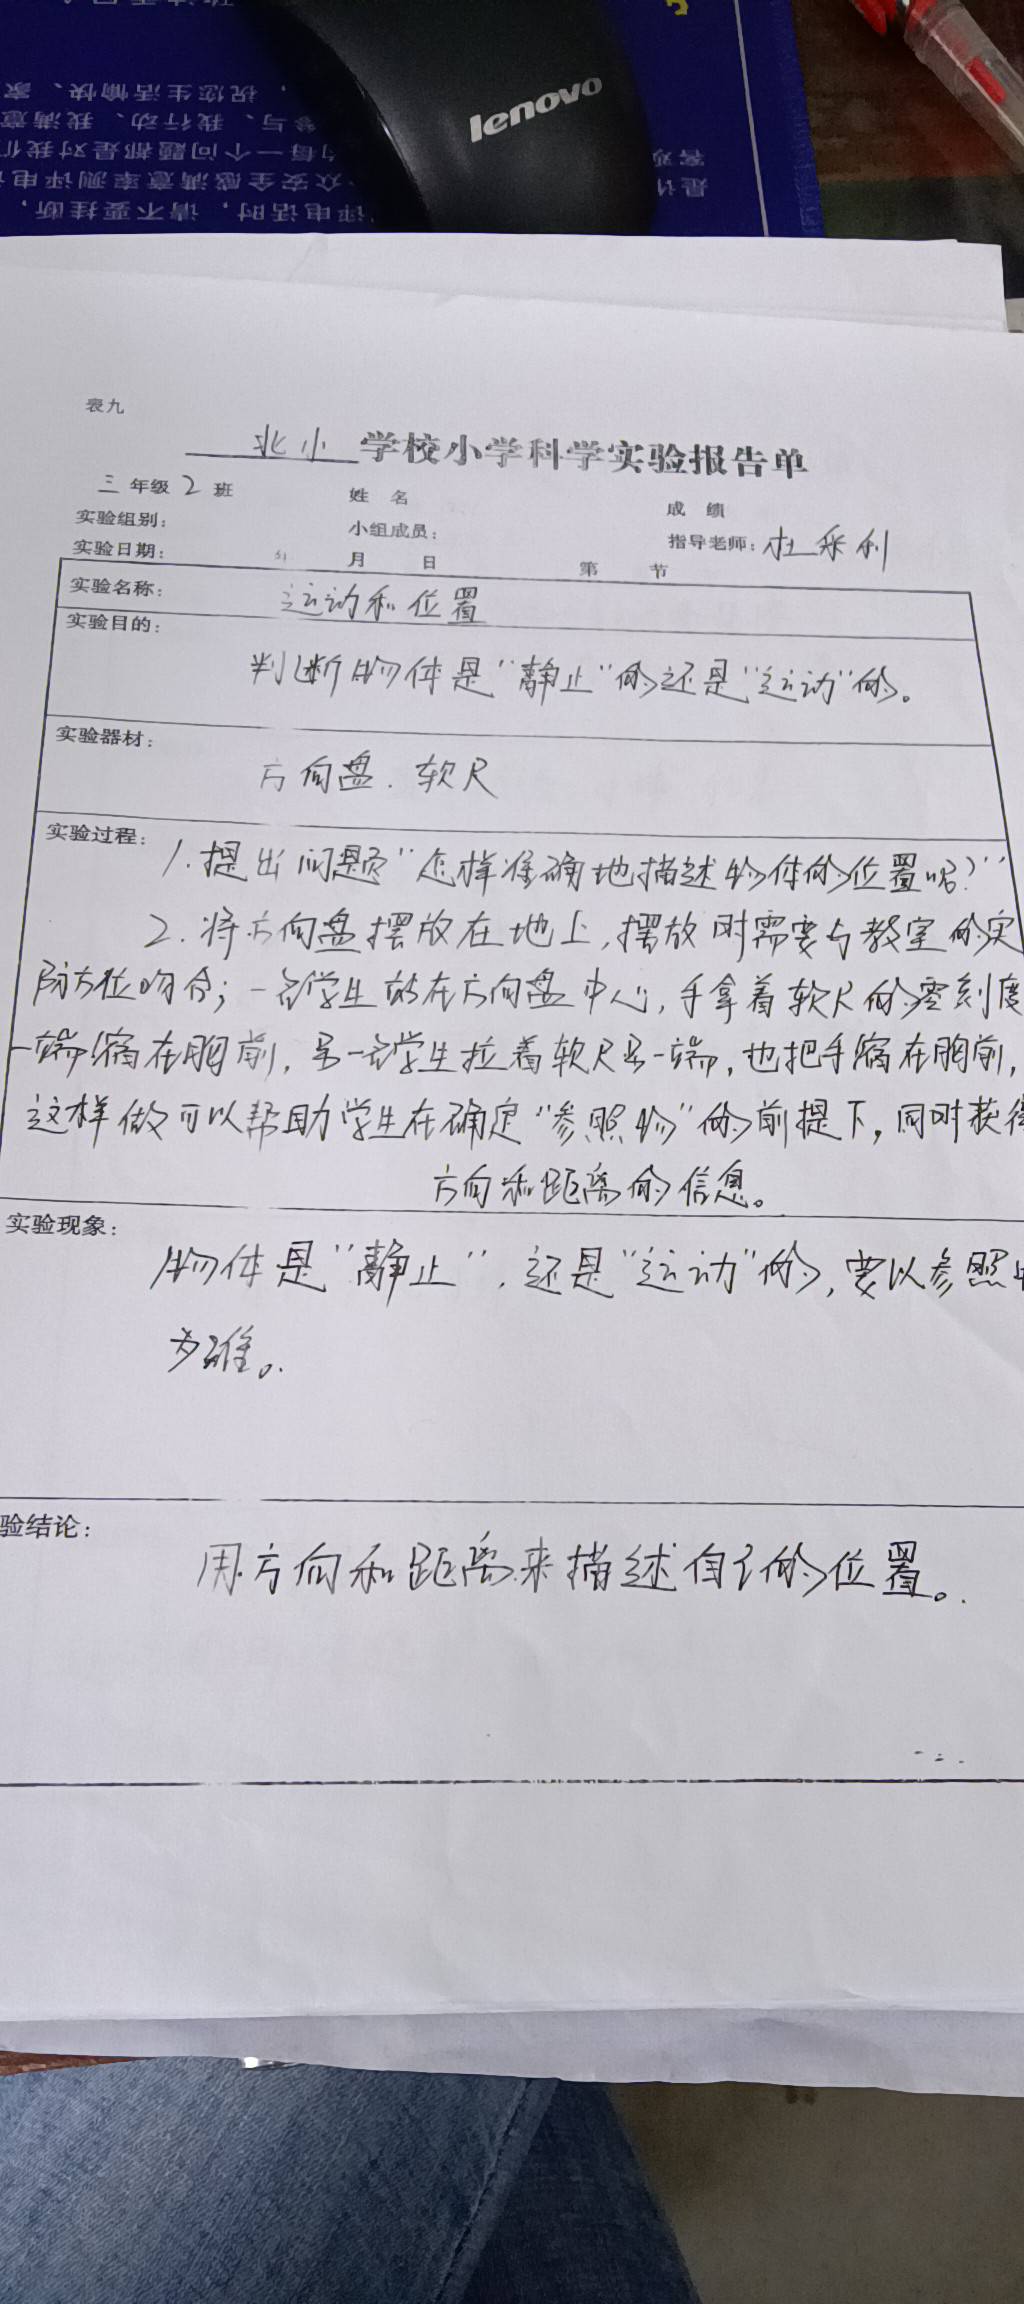 lenovo
，祝您生活愉快、家
参与、我行动、我满意
每一个问题都是对我们
众安全感满意率测评电话
评电话时，请不要挂断，
表九
北小学校小学科学实验报告单
三年级2班 姓名 成绩
实验组别： 小组成员： 指导老师：杜采利
实验日期： 月 日 第 节
实验名称： 运动和位置
实验目的：
判断物体是“静止”的还是“运动”的。
实验器材：
方向盘．软尺
实验过程：
1.提出问题“怎样准确地描述物体的位置呢？”
2.将方向盘摆放在地上，摆放时需要与教室的实
际方位吻合；一名学生站在方向盘中心，手拿着软尺的零刻度
一端缩在胸前，另一名学生拉着软尺另一端，也把手缩在胸前，
这样做可以帮助学生在确定“参照物”的前提下，同时获得
方向和距离的信息。
实验现象：
物体是“静止”，还是“运动”的，要以参照物
为准。
验结论：
用方向和距离来描述自己的位置。